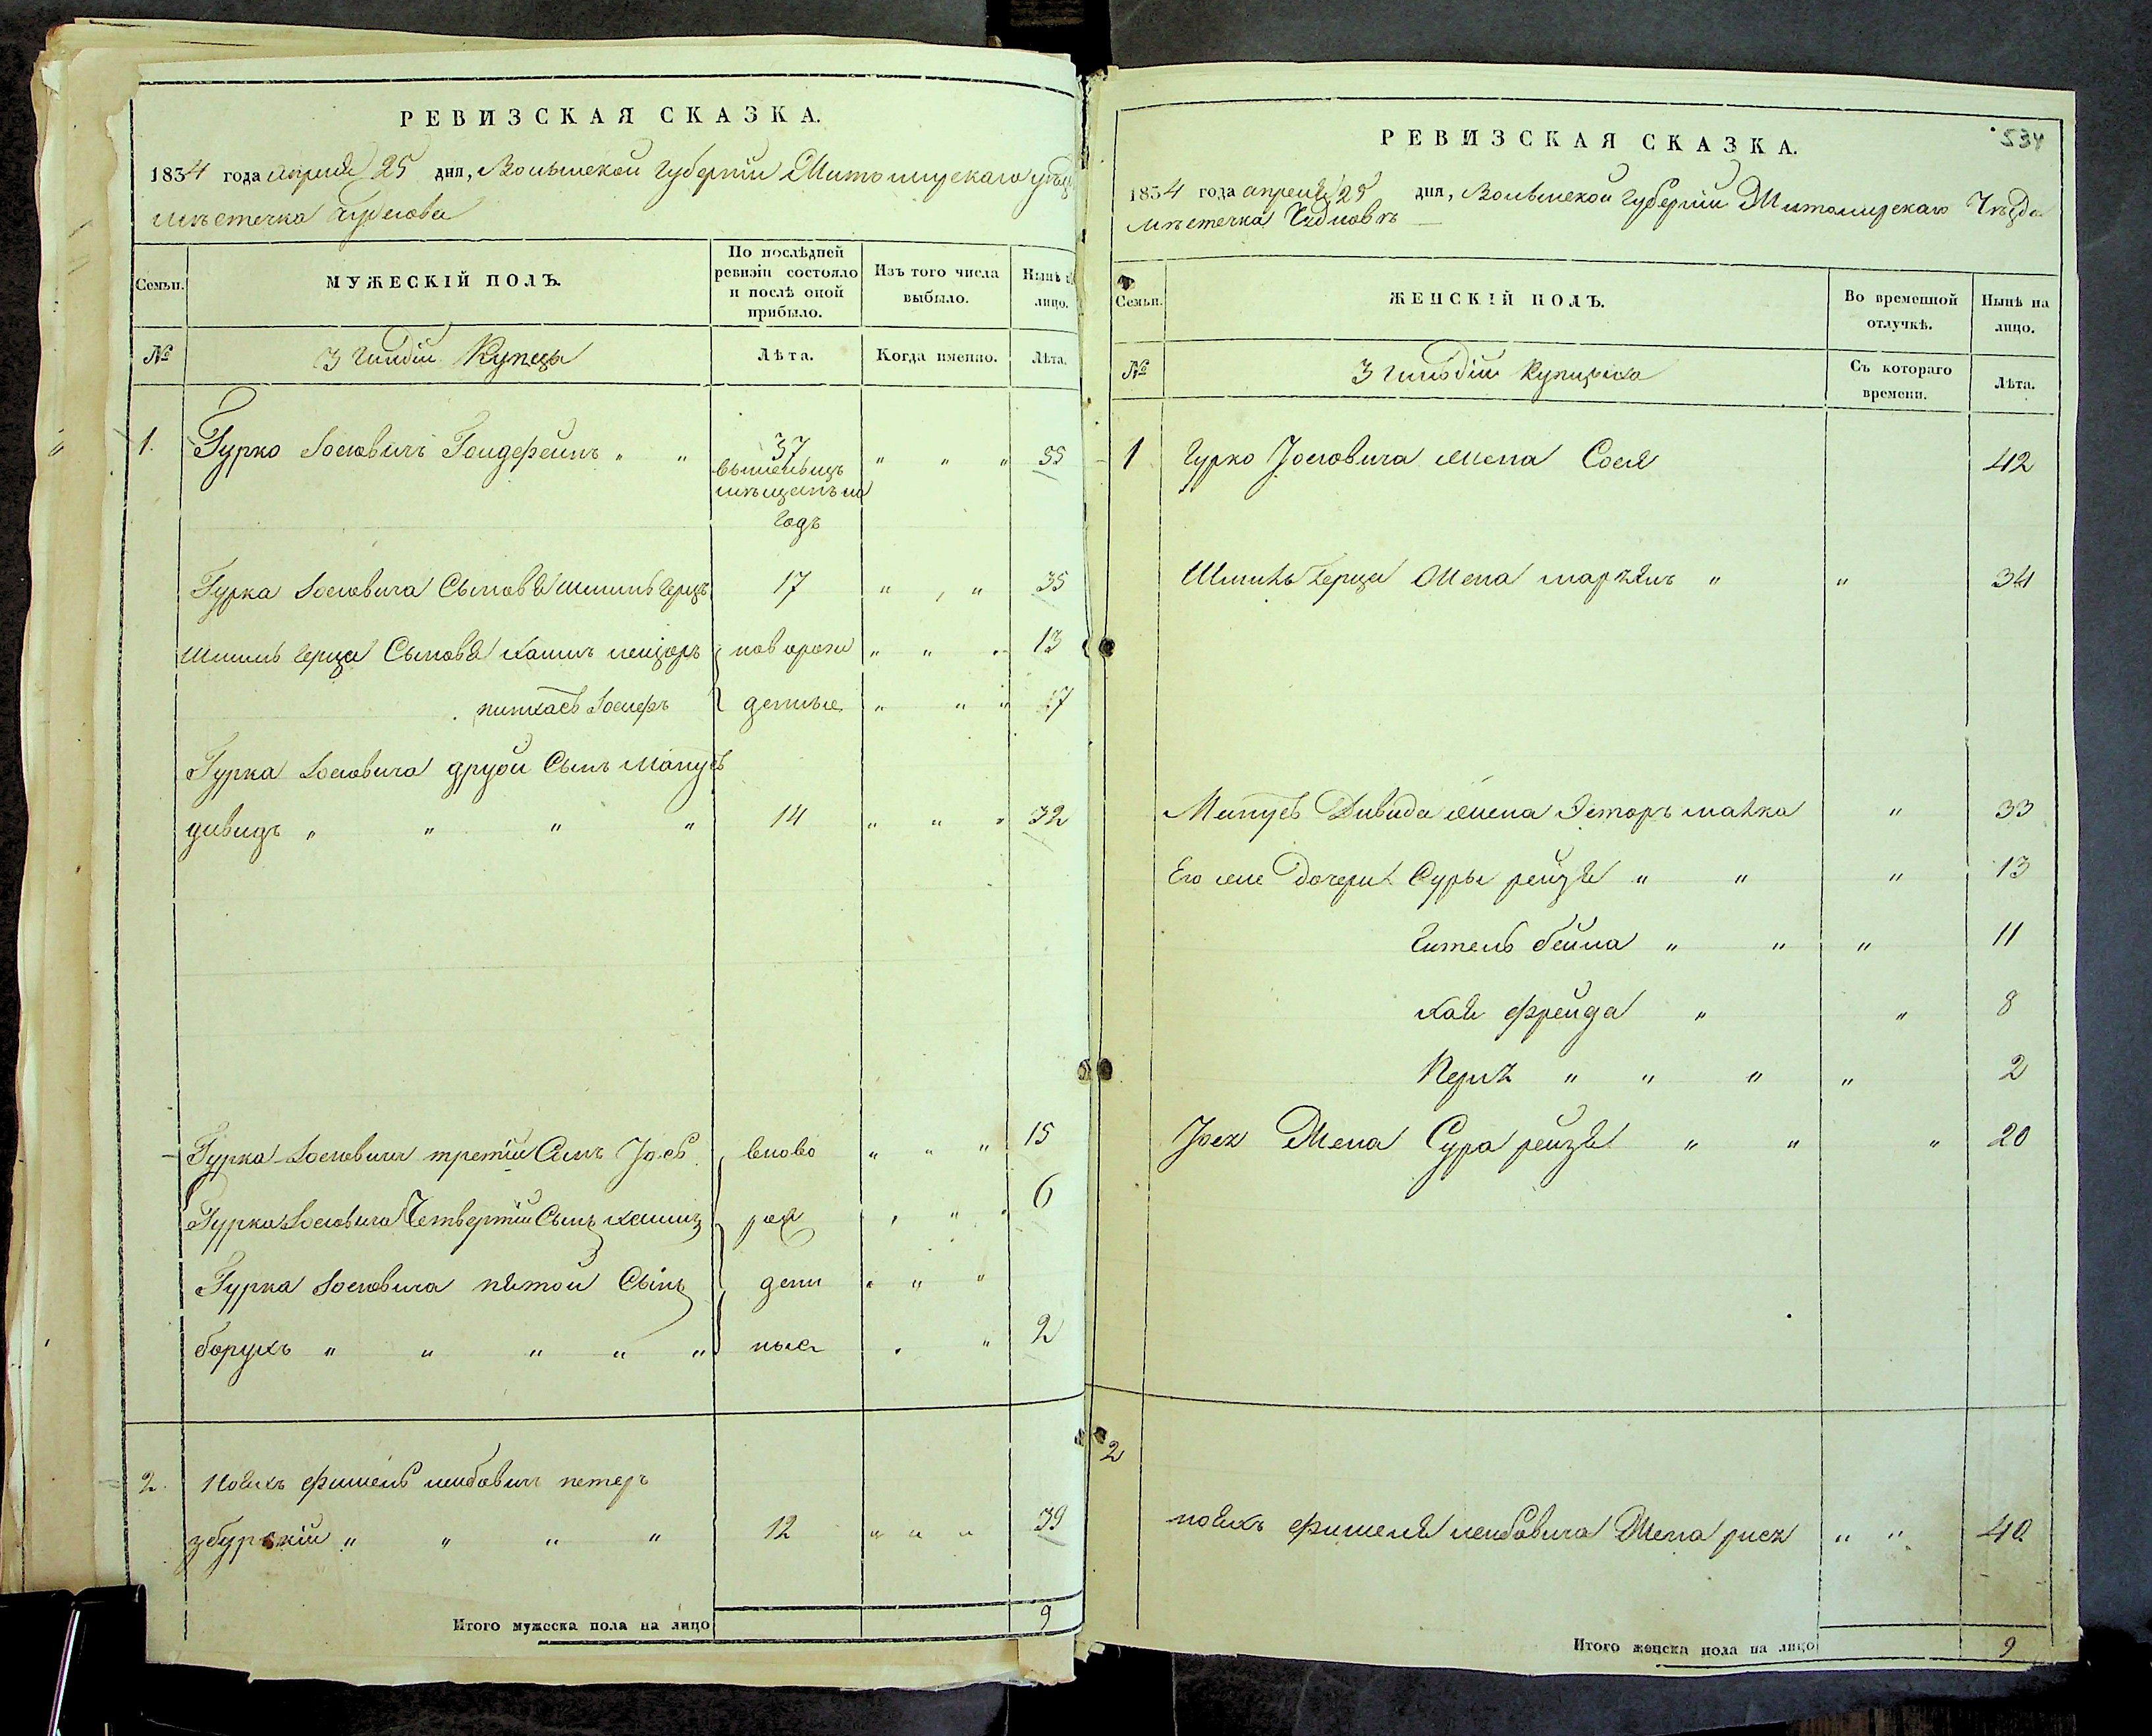 РЕВИЗСКАЯ СКАЗКА.
1834 года апреля 25 дня, Волынской Губернии Житомирскаго уѣзда
мѣстечка
Семьи.
МУЖЕСКІЙ ПОЛЪ.
По послѣдней ревизіи состояло и послѣ оной прибыло.
Изъ того числа выбыло.
Нынѣ на лицо.
№
3 гильдіи Купецъ
Лѣта.
Когда именно.
Лѣта.
1. Гурко Іосіовичъ Гольдфейнъ " " 37 " " " 55
мѣщанъ
годъ
Гурка Іосіовича Сыновя Шмиль Герцъ 17 " " 35
Шмиль Герца Сыновя хаимъ лейзоръ новорож " " " 13
пинхасъ Іосифъ денные " " " 7
Гурка Іосіовича другой Сынъ Манусъ
дивидъ " " " " 14 " " " 32
Гурка Іосіовича третій Сынъ Іосъ вново " " " 15
Гурка Іосіовича Четвертій Сынъ хаимъ рож " " " 6
Гурка Іосіовича пятой Сынъ ден " " "
борухъ " " " " " ные " " 2
2. Ноихъ фишель лейбовичъ петер
збурскій " " " " 12 " " " 39
Итого мужеска пола на лицо 9
534
РЕВИЗСКАЯ СКАЗКА.
1834 года апреля 25 дня, Волынской Губерніи Житомирскаго Уѣзда
мѣстечка Чуднова
Семьи.
ЖЕНСКІЙ ПОЛЪ.
Во временной отлучкѣ.
Нынѣ на лицо.
№
3 гильдіи Купчиха
Съ котораго времени.
Лѣта.
1 Гурко Іосіовича жена Сося 42
Шмиль Герца Жена марьямъ " " 34
Манусъ Дивида жена Эстеръ малка " 33
Его же дочери Суры рейзя " " " 13
Гитель бейла " " " 11
хая фрейда " " 8
Перл " " " " 2
Жена Сура рейзя " " " 20
2
ноихъ фишеля лейбовича Жена " " 40
Итого женска пола на лицо 9